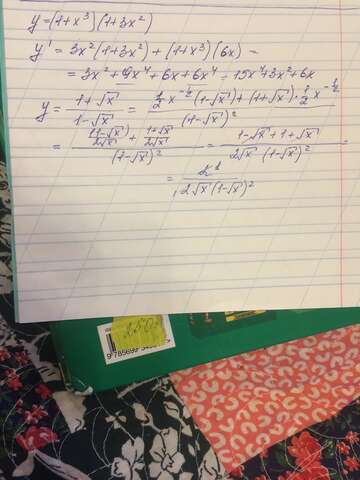 y=(1+x³)(1+3x²)
y' = 3x²(1+3x²)+(1+x³)(6x) =
= 3x²+9x⁴+6x+6x⁴ = 15x⁴+3x²+6x
y = (1+√x)/(1-√x) = (1/2 x^(-1/2) (1-√x)+(1+√x)·1/2 x^(-1/2))/(1-√x)²
= ((1-√x)/(2√x) + (1+√x)/(2√x))/(1-√x)² = (1-√x+1+√x)/(2√x (1-√x)²) =
= /(2√x(1-√x)²)
250
9 785699